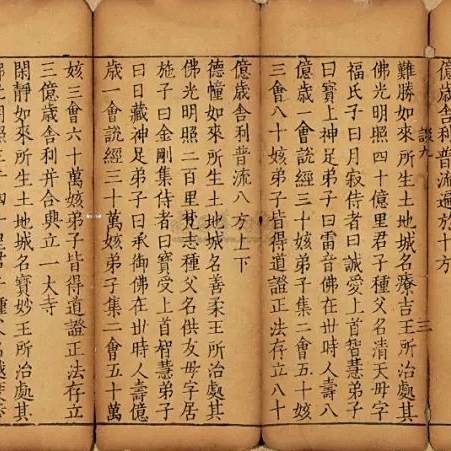 億歲舍利普流遍於十方
談九 三
難勝如來所生土地城名療吉王所治處其
佛光明照四十億里君子種父名清天母字
福氏子曰月寂侍者曰誠愛上首智慧弟子
曰寶上神足弟子曰雷音佛在世時人壽八
億歲一會說經三十姟弟子集二會五十姟
三會八十姟弟子皆得道證正法存立八十
億歲舍利普流八方上下
德幢如來所生土地城名善柔王所治處其
佛光明照二百里梵志種父名供友母字居
施子曰金剛集侍者曰寶受上首智慧弟子
曰日藏神足弟子曰承御佛在世時人壽億
歲一會說經三十萬姟弟子集二會五十萬
姟三會六十萬姟弟子皆得道證正法存立
三億歲舍利并合興立一大寺
閑靜如來所生土地城名寶妙王所治處其
佛光明照三十四十里君子種父名